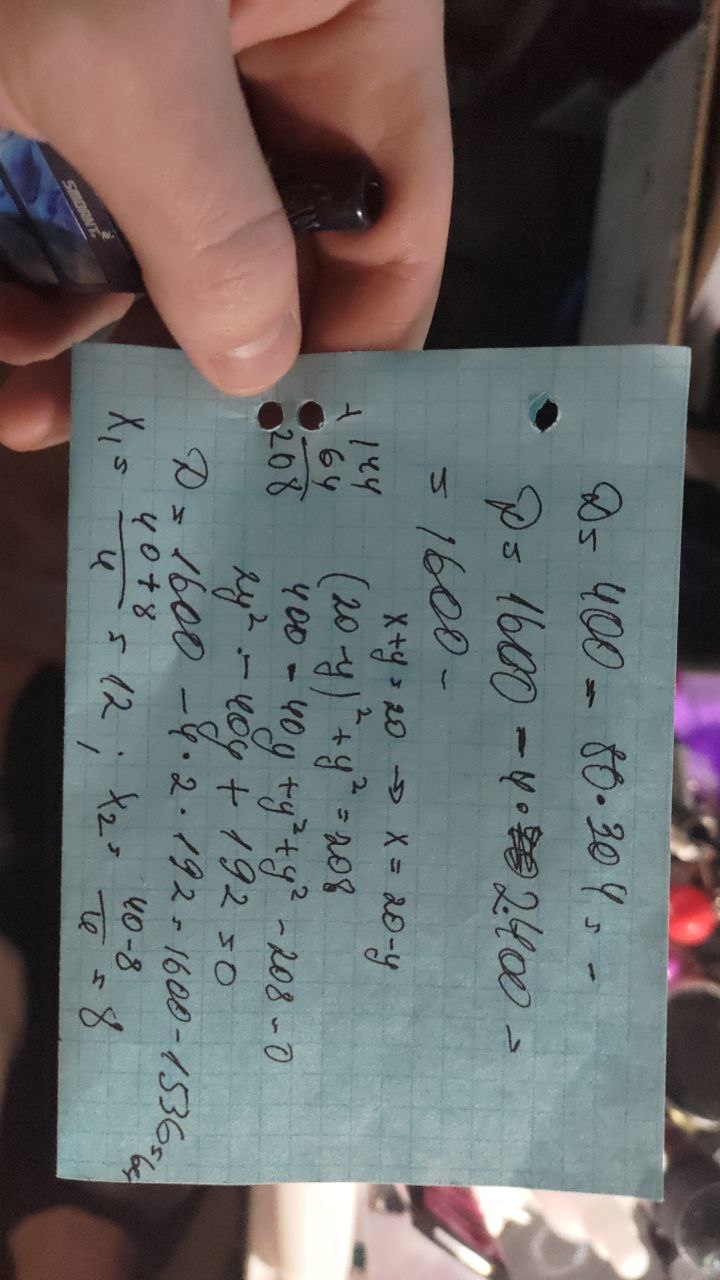 D = 400 - 80·204 = -
D = 1600 - 4·2·400 =
= 1600 -
+144
64
208
x+y=20 → x = 20-y
(20-y)²+y²=208
400 - 40y +y²+y² -208=0
2y² - 40y + 192 = 0
D = 1600 - 4·2·192 = 1600-1536=64
x₁ = 40+8/4 = 12; x₂ = 40-8/4 = 8
SMOANT